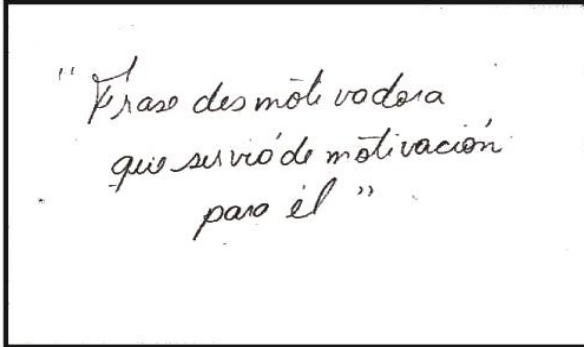 "Frase desmotivadora
que servió de motivación
para él"